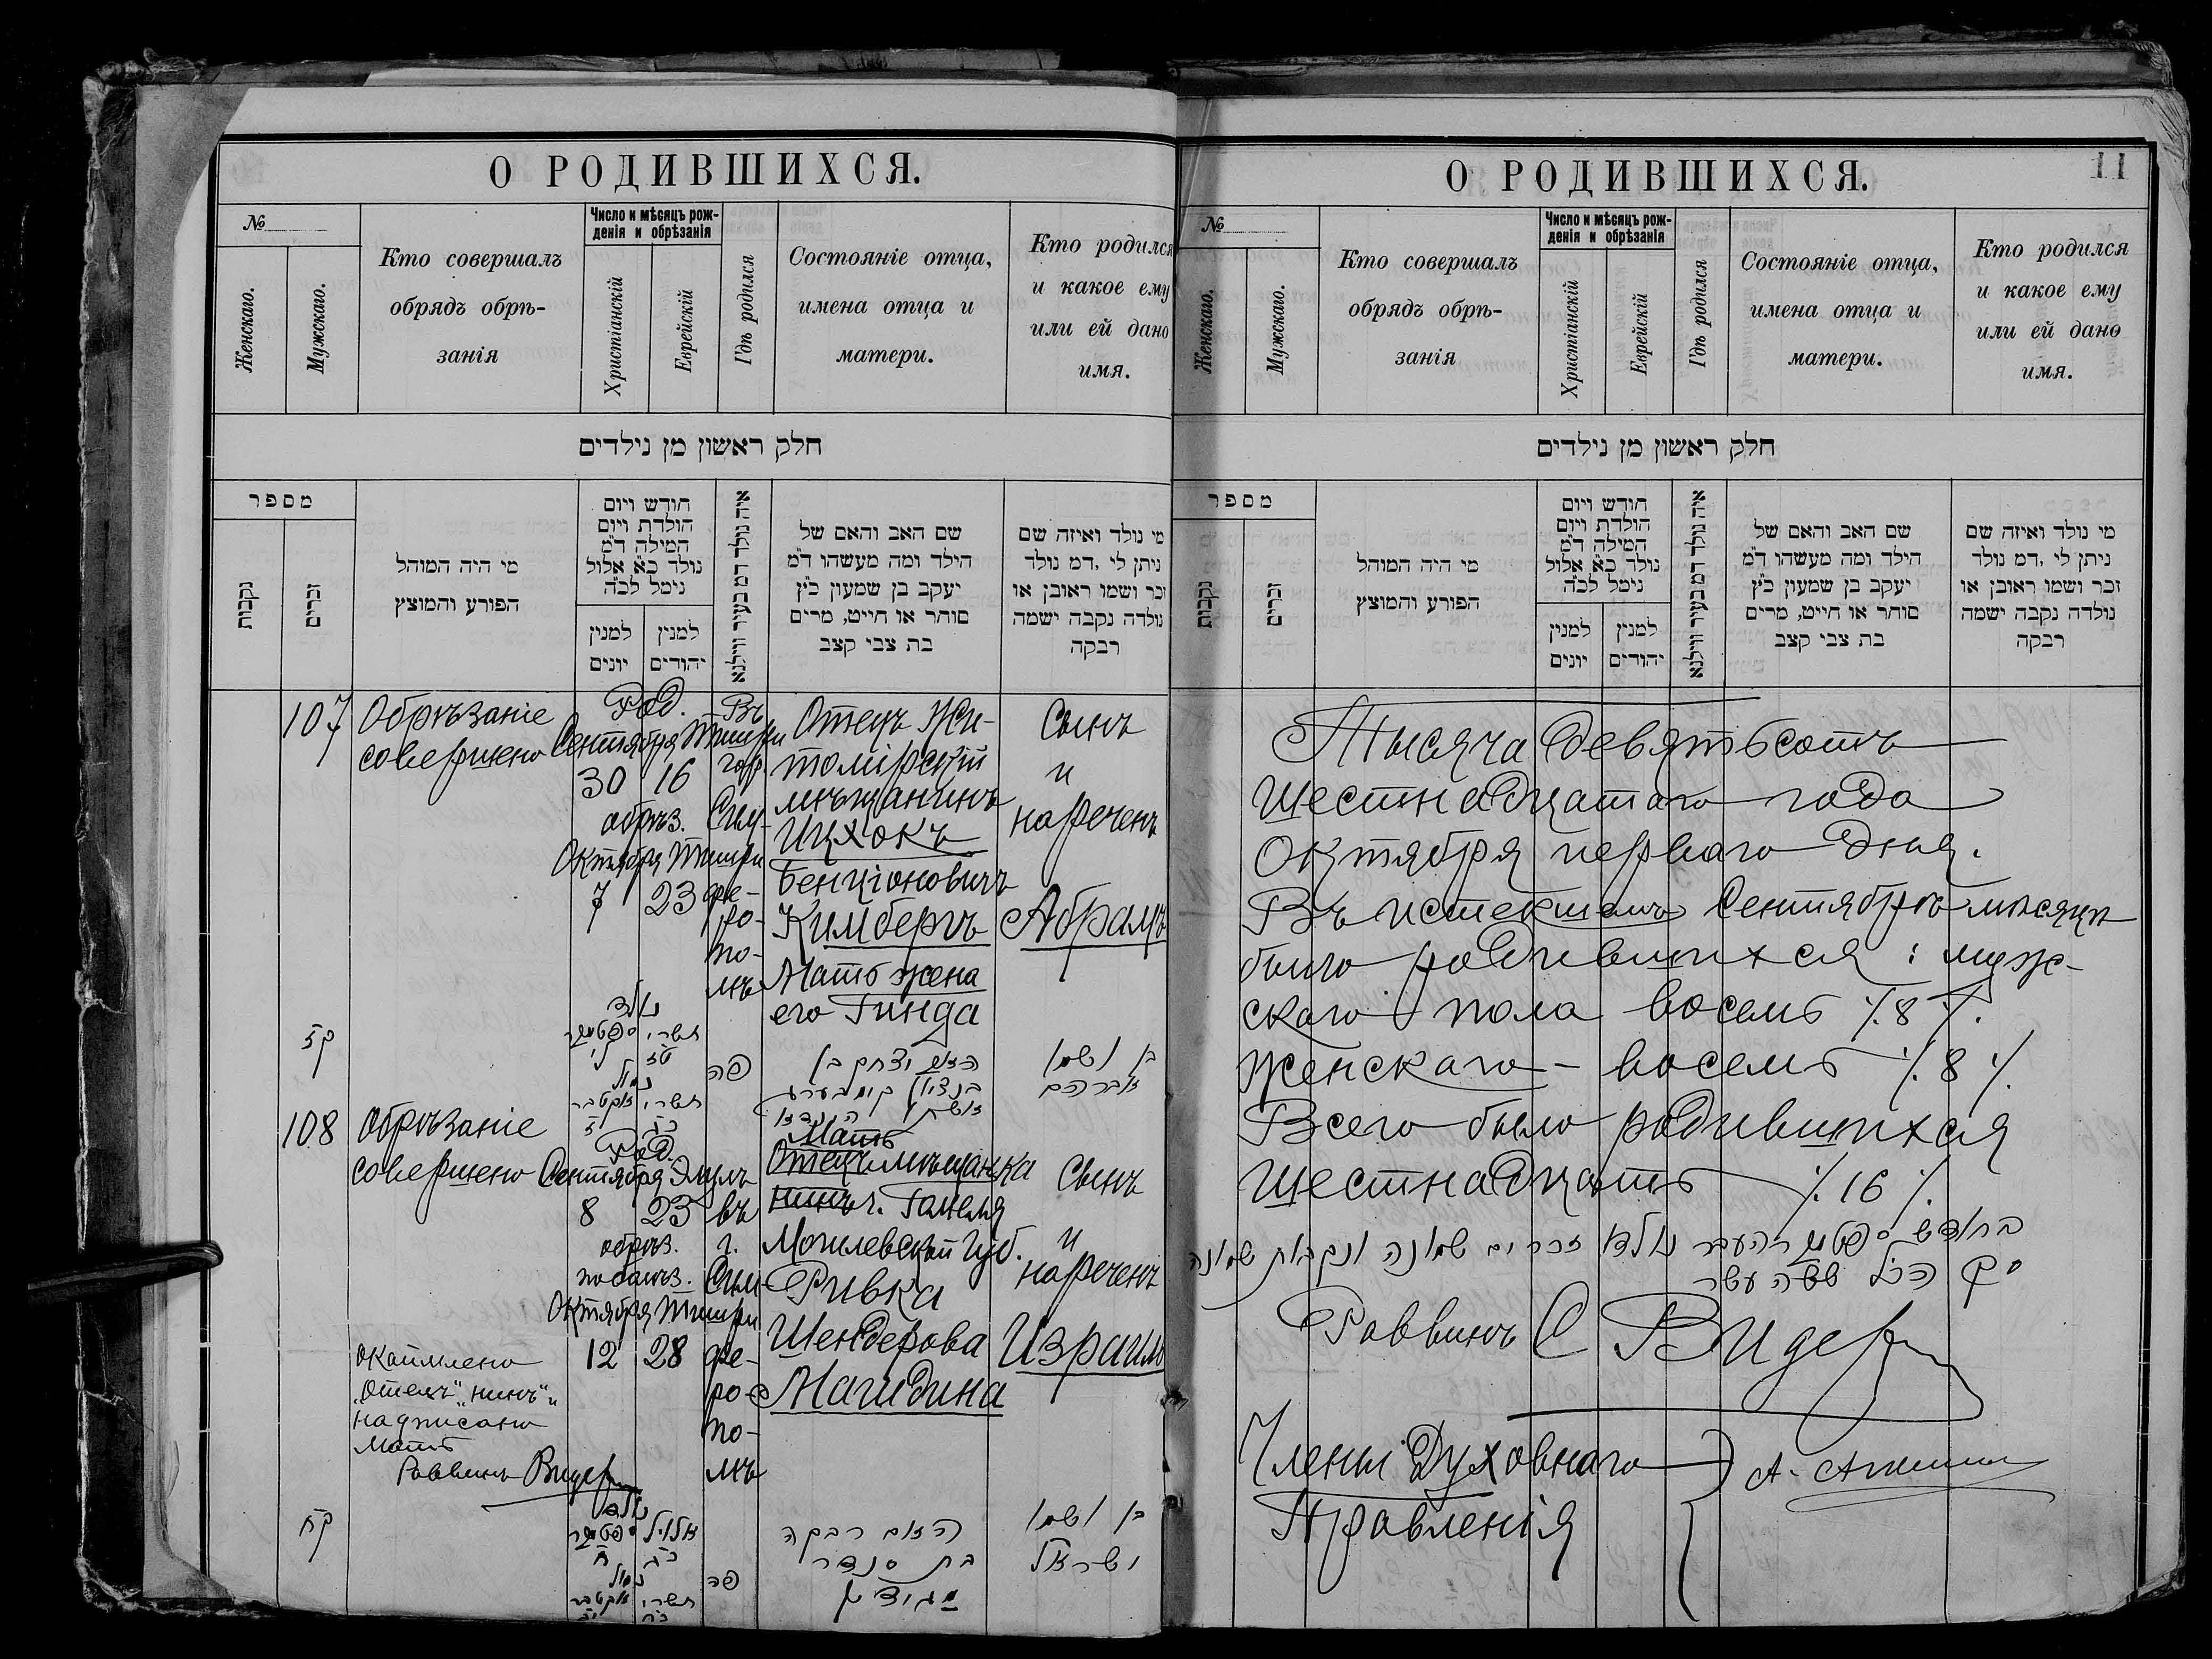 О РОДИВШИХСЯ.
№
Женскаго.
Мужскаго.
Кто совершалъ
обрядъ обрѣ-
занія
Число и мѣсяцъ рож-
денія и обрѣзанія
Христіанскій
Еврейскій
Гдѣ родился
Состояніе отца,
имена отца и
матери.
Кто родился
и какое ему
или ей дано
имя.
חלק ראשון מן נילדים
מספר
נקבות
זכרים
מי היה המוהל
הפורע והמוצץ
חודש ויום
הולדת ויום
המילה ד"מ
נולד כ"א אלול
נימל לכ"ה
למנין
יונים
למנין
יהודים
איה נולד דמ בעיר ווילנא
שם האב והאם של
הילד ומה מעשהו ד"מ
יעקב בן שמעון כ"ץ
סוחר או חייט, מרים
בת צבי קצב
מי נולד ואיזה שם
ניתן לי, דמ נולד
זכר ושמו ראובן או
נולדה נקבה ישמה
רבקה
107
Обрѣзаніе
совершено
Род.
Сентября Тишри
30 16
обрѣз.
Октября Тишри
7 23
Въ
гор.
Сим-
фе-
ро-
по-
лѣ
Отецъ Жи-
томірскій
мѣщанинъ
Ицхокъ
Бенціоновичъ
Кимбергъ
Мать жена
его Гинда
Сынъ
и
нареченъ
Абрамъ
קז
נולד
תשרי ספטמבר
טז ל
נמול
תשרי אקטבר
כג ז
פה
האב יצחק בן
בנציון קימבערג
אשתו הינדא
בן ושמו
אברהם
108
Обрѣзаніе
совершено
Род.
Сентября Элулъ
8 23
обрѣз.
по болѣз.
Октября Тишри
12 28
въ
г.
Сим
фе-
ро-
по-
лѣ
Мать
Отецъ мѣщанка
нинъ г. Гомеля
Могилевской губ.
Ривка
Шендерова
Магидина
Сынъ
и
нареченъ
Израиль
окаймлено
„Отецъ" „нинъ" и
надписано
Мать
Раввинъ Видер
קח
נולד
אלול ספטמבר
כג ח
נמול
תשרי אקטבר
כח יב
פה
האם רבקה
בת סנדר
מגידין
בן ושמו
ישראל
О РОДИВШИХСЯ.
11
№
Женскаго.
Мужскаго.
Кто совершалъ
обрядъ обрѣ-
занія
Число и мѣсяцъ рож-
денія и обрѣзанія
Христіанскій
Еврейскій
Гдѣ родился
Состояніе отца,
имена отца и
матери.
Кто родился
и какое ему
или ей дано
имя.
חלק ראשון מן נילדים
מספר
נקבות
זכרים
מי היה המוהל
הפורע והמוצץ
חודש ויום
הולדת ויום
המילה ד"מ
נולד כ"א אלול
נימל לכ"ה
למנין
יונים
למנין
יהודים
איה נולד דמ בעיר ווילנא
שם האב והאם של
הילד ומה מעשהו ד"מ
יעקב בן שמעון כ"ץ
סוחר או חייט, מרים
בת צבי קצב
מי נולד ואיזה שם
ניתן לי, דמ נולד
זכר ושמו ראובן או
נולדה נקבה ישמה
רבקה
Тысяча девятьсотъ
шестнадцатаго года
Октября перваго дня.
Въ истекшемъ Сентябрѣ мѣсяцѣ
было родившихся: муж-
скаго пола восемь ./. 8 ./.
Женскаго - восемь ./. 8 ./.
Всего было родившихся
шестнадцать ./. 16 ./.
בחודש ספטמבר העבר נולדו זכרים שמונה ונקבות שמונה
סך הכל ששה עשר
Раввинъ С Видер
Члены Духовнаго
Правленія